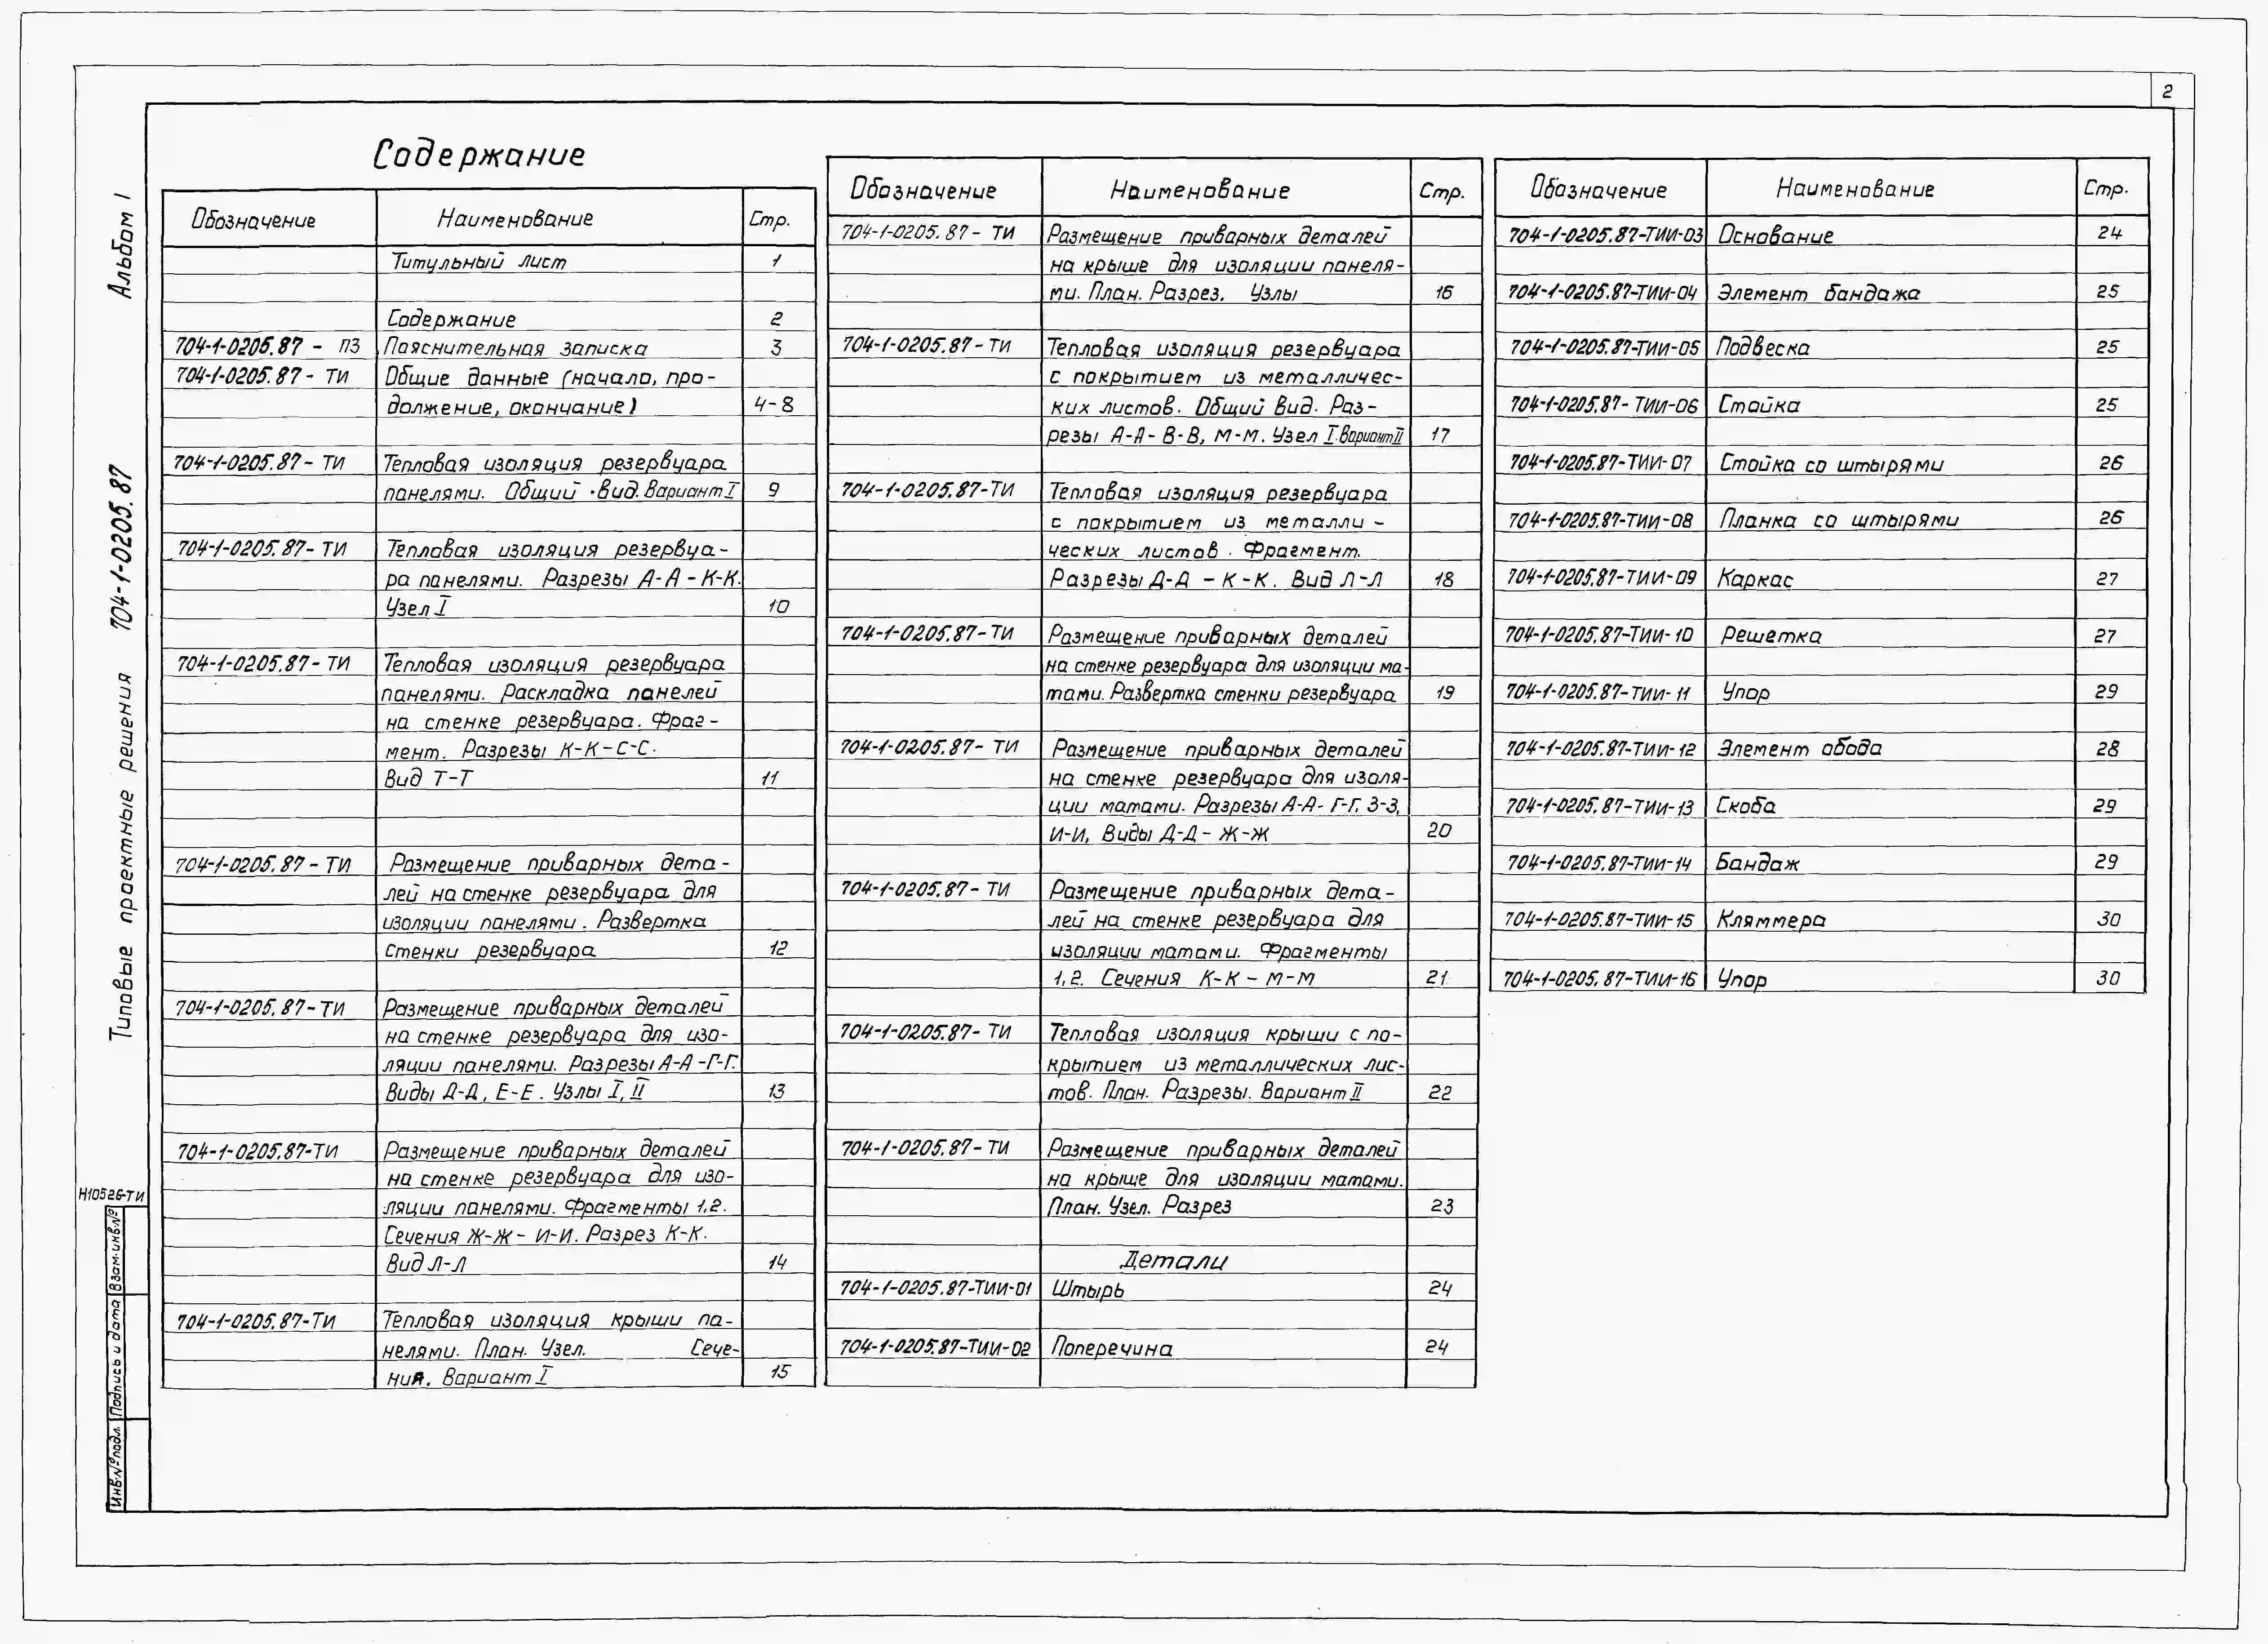 2
Содержание
Альбом I
Типовые проектные решения 704-1-0205.87
Обозначение Наименование Стр.
Титульный лист 1
Содержание 2
704-1-0205.87 - ПЗ Пояснительная записка 3
704-1-0205.87 - ТИ Общие данные (начало, про-
должение, окончание) 4-8
704-1-0205.87 - ТИ Тепловая изоляция резервуара
панелями. Общий вид. Вариант I 9
704-1-0205.87 - ТИ Тепловая изоляция резервуа-
ра панелями. Разрезы А-А - К-К.
Узел I 10
704-1-0205.87 - ТИ Тепловая изоляция резервуара
панелями. Раскладка панелей
на стенке резервуара. Фраг-
мент. Разрезы К-К - С-С.
Вид Т-Т 11
704-1-0205.87 - ТИ Размещение приварных дета-
лей на стенке резервуара для
изоляции панелями. Развертка
стенки резервуара 12
704-1-0205.87 - ТИ Размещение приварных деталей
на стенке резервуара для изо-
ляции панелями. Разрезы А-А - Г-Г.
Виды Д-Д, Е-Е. Узлы I, II 13
704-1-0205.87-ТИ Размещение приварных деталей
на стенке резервуара для изо-
ляции панелями. Фрагменты 1,2.
Сечения Ж-Ж - И-И. Разрез К-К.
Вид Л-Л 14
704-1-0205.87-ТИ Тепловая изоляция крыши па-
нелями. План. Узел. Сече-
ния. Вариант I 15
Обозначение Наименование Стр.
704-1-0205.87 - ТИ Размещение приварных деталей
на крыше для изоляции панеля-
ми. План. Разрез. Узлы 16
704-1-0205.87 - ТИ Тепловая изоляция резервуара
с покрытием из металличес-
ких листов. Общий вид. Раз-
резы А-А - В-В, М-М. Узел I. Вариант II 17
704-1-0205.87-ТИ Тепловая изоляция резервуара
с покрытием из металли -
ческих листов. Фрагмент.
Разрезы Д-Д - К-К. Вид Л-Л 18
704-1-0205.87-ТИ Размещение приварных деталей
на стенке резервуара для изоляции ма-
тами. Развертка стенки резервуара 19
704-1-0205.87- ТИ Размещение приварных деталей
на стенке резервуара для изоля-
ции матами. Разрезы А-А - Г-Г, З-З,
И-И, Виды Д-Д - Ж-Ж 20
704-1-0205.87- ТИ Размещение приварных дета-
лей на стенке резервуара для
изоляции матами. Фрагменты
1,2. Сечения К-К - М-М 21
704-1-0205.87- ТИ Тепловая изоляция крыши с по-
крытием из металлических лис-
тов. План. Разрезы. Вариант II 22
704-1-0205.87- ТИ Размещение приварных деталей
на крыше для изоляции матами.
План. Узел. Разрез 23
Детали
704-1-0205.87-ТИИ-01 Штырь 24
704-1-0205.87-ТИИ-02 Поперечина 24
Обозначение Наименование Стр.
704-1-0205.87-ТИИ-03 Основание 24
704-1-0205.87-ТИИ-04 Элемент бандажа 25
704-1-0205.87-ТИИ-05 Подвеска 25
704-1-0205.87-ТИИ-06 Стойка 25
704-1-0205.87-ТИИ-07 Стойка со штырями 26
704-1-0205.87-ТИИ-08 Планка со штырями 26
704-1-0205.87-ТИИ-09 Каркас 27
704-1-0205.87-ТИИ-10 Решетка 27
704-1-0205.87-ТИИ-11 Упор 29
704-1-0205.87-ТИИ-12 Элемент обода 28
704-1-0205.87-ТИИ-13 Скоба 29
704-1-0205.87-ТИИ-14 Бандаж 29
704-1-0205.87-ТИИ-15 Кляммера 30
704-1-0205.87-ТИИ-16 Упор 30
Н10526-ТИ
Взам.инв.№
Подпись и дата
Инв.№подл.